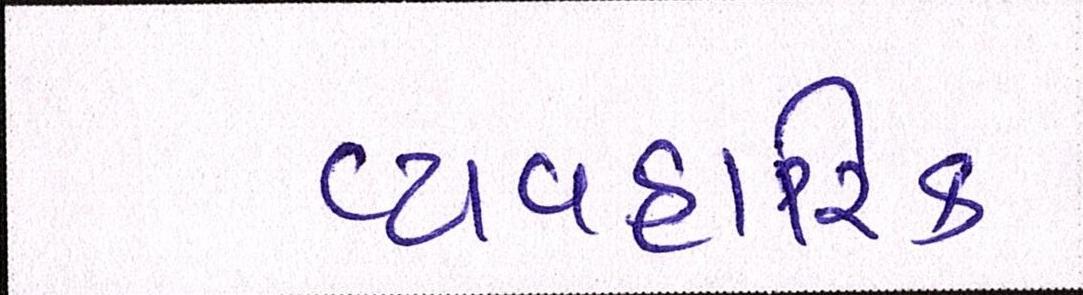 વ્યવહારિક